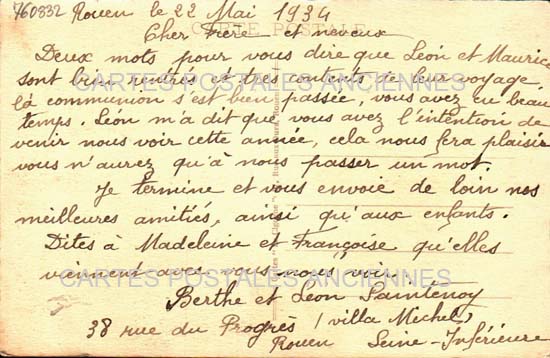 760832 Rouen le 22 Mai 1934
CARTE POSTALE
Cher Frère et neveux
Deux mots pour vous dire que Léon et Maurice
sont bien rentrés et très contents de leur voyage,
CARTES POSTALES ANCIENNES
la communion s'est bien passée, vous avez eu beau
temps. Léon m'a dit que vous avez l'intention de
venir nous voir cette année, cela nous fera plaisir
vous n'aurez qu'à nous passer un mot.
Je termine et vous envoie de loin nos
meilleures amitiés, ainsi qu'aux enfants.
Dites à Madeleine et Françoise qu'elles
viennent avec vous nous voir.
CARTES POSTALES ANCIENNES
Berthe et Léon
38 rue du Progrès (villa Michel)
Rouen Seine-Inférieure